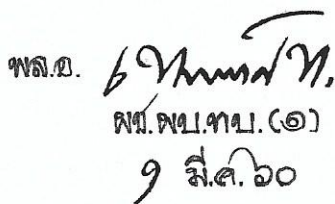 พล.อ.
ผช.ผบ.ทบ. (๑)
๑ มี.ค. ๖๐